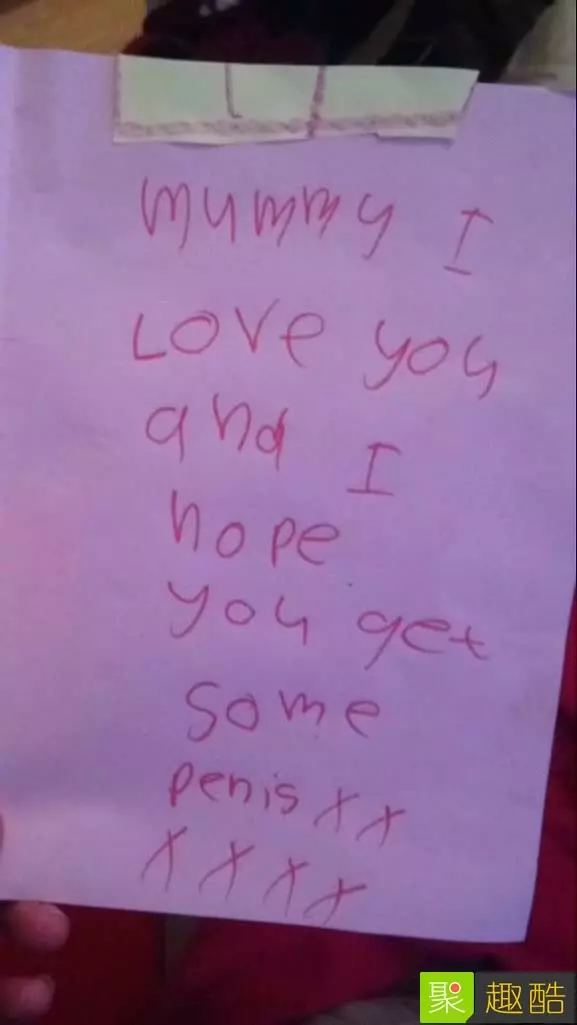 mummy I
Love you
and I
hope
you get
some
penis xx
xxxx
聚 趣酷